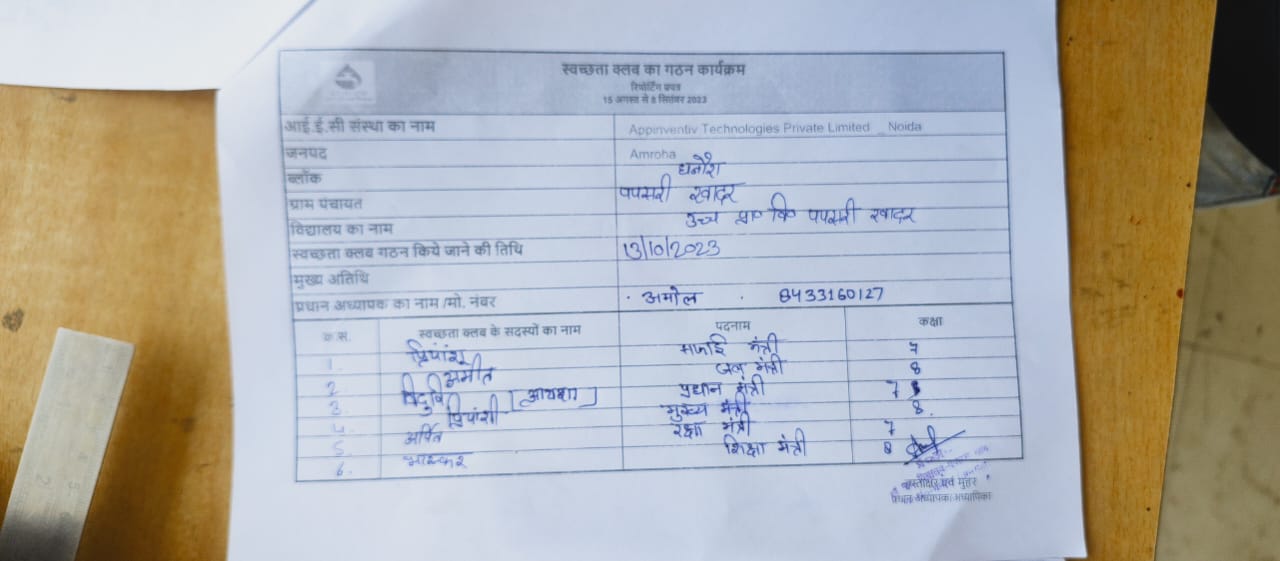 स्वच्छता क्लब का गठन कार्यक्रम
रिपोर्टिंग प्रपत्र
15 अगस्त से 8 सितंबर 2023
आई.ई.सी संस्था का नाम Appinventiv Technologies Private Limited _ Noida
जनपद Amroha
ब्लॉक धनौरा
ग्राम पंचायत पपसरी खादर
विद्यालय का नाम उच्च प्रा० वि० पपसरी खादर
स्वच्छता क्लब गठन किये जाने की तिथि 13/10/2023
मुख्य अतिथि
प्रधान अध्यापक का नाम /मो. नंबर अमोल 8433160127
क.स. स्वच्छता क्लब के सदस्यों का नाम पदनाम कक्षा
1. प्रियांशू सफाई मंत्री 7
2. अमीत जल मंत्री 8
3. विदुषि [आयशा] प्रधान मंत्री 7
4. प्रियांशी मुख्य मंत्री 8.
5. अर्पित रक्षा मंत्री 7
6. भास्कर शिक्षा मंत्री 8
हस्ताक्षर एवं मुहर
प्रधान अध्यापक/अध्यापिका